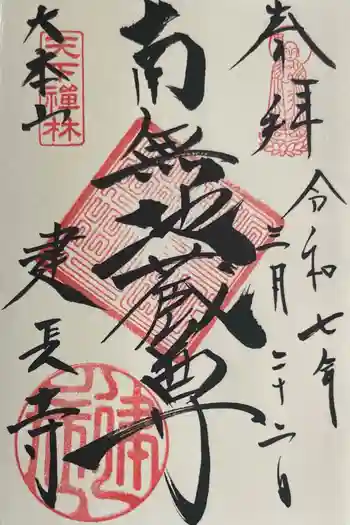 奉拝
令和七年
三月二十二日
南無地蔵尊
大本山
天下禅林
建長寺